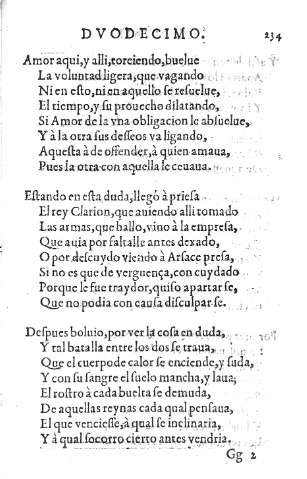 DVODECIMO. 234
Amor aqui, y alli, torciendo, buelue
La voluntad ligera, que vagando
Ni en esto, ni en aquello se resuelue,
El tiempo, y su prouecho dilatando,
Si Amor de la vna obligacion le absuelue,
Y à la otra sus desseos va ligando,
Aquesta à de offender, à quien amaua,
Pues la otra con aquella le ceuaua.
Estando en esta duda, llegó à priesa
El rey Clarion, que auiendo alli tomado
Las armas, que hallo, vino à la empresa,
Que auia por faltalle antes dexado,
O por descuydo viendo à Arsace presa,
Si no es que de verguença, con cuydado
Porque le fue traydor, quiso apartar se,
Que no podia con causa disculpar se.
Despues boluio, por ver la cosa en duda,
Y tal batalla entre los dos se traua,
Que el cuerpo de calor se enciende, y suda,
Y con su sangre el suelo mancha, y laua;
El rostro à cada buelta se demuda,
De aquellas reynas cada qual pensaua,
El que venciesse, à qual se inclinaria,
Y à qual socorro cierto antes vendria.
Gg 2